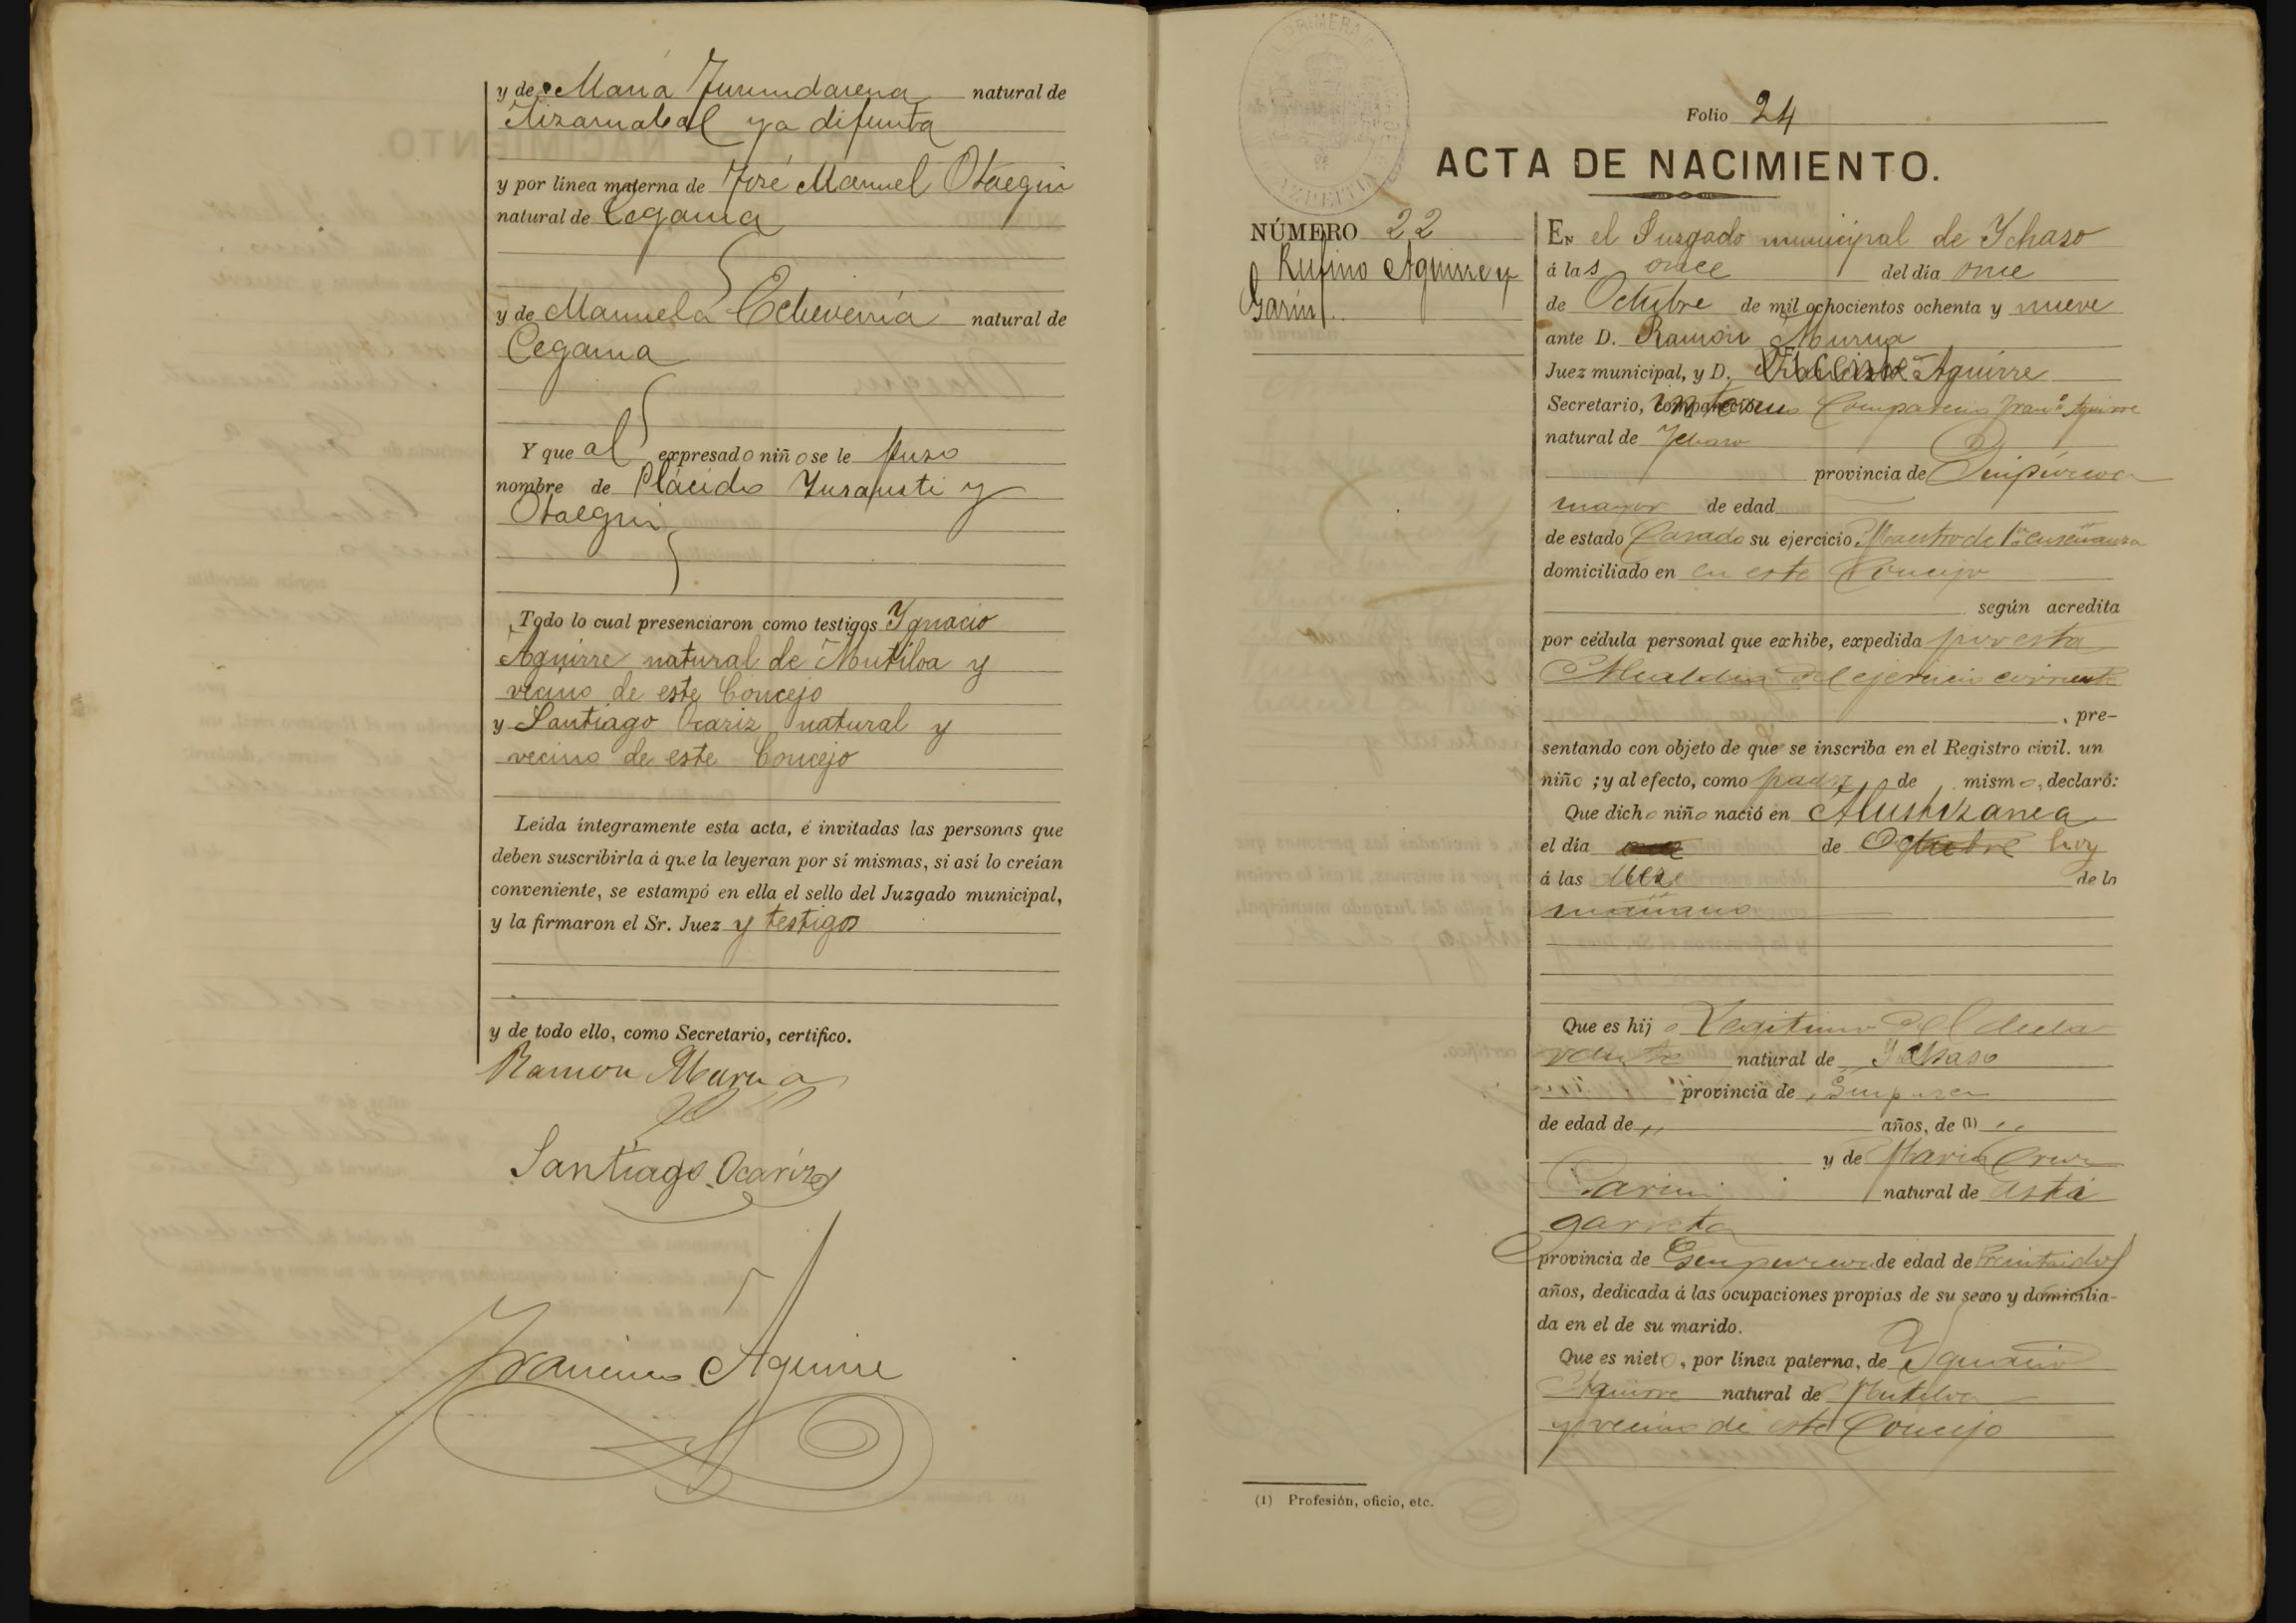 y de María Jurundarena natural de
Aizarnabal ya difunta
y por línea materna de José Manuel Otaegui
natural de Cegama
y de Manuela Echeverría natural de
Cegama
Y que al expresado niño se le puso
nombre de Plácido Yurrausti y
Otaegui
Todo lo cual presenciaron como testigos Ygnacio
Aguirre natural de Mutiloa y
vecino de este Concejo
y Santiago Ocariz natural y
vecino de este Concejo
Leída íntegramente esta acta, é invitadas las personas que
deben suscribirla á que la leyeran por sí mismas, si así lo creían
conveniente, se estampó en ella el sello del Juzgado municipal,
y la firmaron el Sr. Juez y testigos
y de todo ello, como Secretario, certifico.
Ramon Murua
Santiago Ocariz
Francisco Aguirre
Folio 24
ACTA DE NACIMIENTO.
AZPEITIA
NÚMERO 22
Rufino Aguirre y
Garin
En el Juzgado municipal de Ychaso
á las once del día once
de Octubre de mil ochocientos ochenta y nueve
ante D. Ramón Murua
Juez municipal, y D. Francisco Aguirre
Secretario, compareció Franco Aguirre
natural de Ychaso
provincia de Guipúzcoa
mayor de edad
de estado Casado su ejercicio Maestro de 1ª enseñanza
domiciliado en en este Concejo
según acredita
por cédula personal que exhibe, expedida por esta
Alcaldia del ejercicio corriente
, pre-
sentando con objeto de que se inscriba en el Registro civil. un
niño ; y al efecto, como padre de mismo, declaró:
Que dicho niño nació en Alustizanea
el día de Octubre hoy
á las diez de la
mañana
Que es hijo Legitimo del decla
rante natural de Ychaso
provincia de Guipuzcoa
de edad de " años, de (1) "
y de Maria Cruz
Garin natural de Asti
garreta
provincia de Guipuzcoa de edad de treinta i dos
años, dedicada á las ocupaciones propias de su sexo y domicilia-
da en el de su marido.
Que es nieto, por línea paterna, de Ygnacio
Aguirre natural de Mutiloa
y vecino de este Concejo
(1) Profesión, oficio, etc.